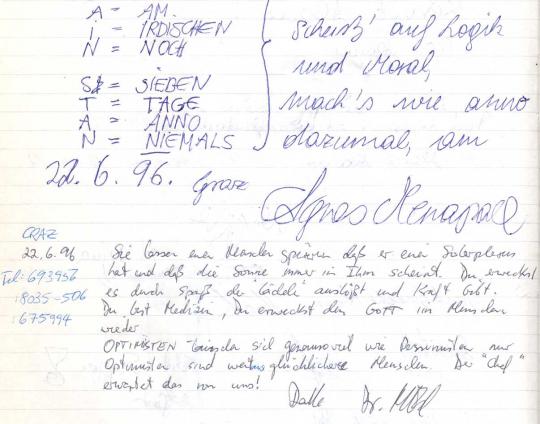 A = AM
I = IRDISCHEN
N = NOCH
S = SIEBEN
T = TAGE
A = ANNO
N = NIEMALS
scheiß' auf Logik
und Moral,
mach's wie anno
dazumal, am
22.6.96. Graz
Agnes Menapace
GRAZ
22.6.96
Tel: 693956
:8035-506
:675994
Sie lassen einen Menschen spüren daß er einen Solarplexus
hat und daß die Sonne immer in Ihm scheint. Du erweckst
es durch Spaß der auslößt und Kraft gibt.
Du bist Medizin, Du erweckst den GOTT im Menschen
wieder.
OPTIMISTEN sich genausoviel wie Pessimisten nur
Optimisten sind weitaus glücklichere Menschen. Der "Chef"
erwartet das von uns!
Danke Dr.